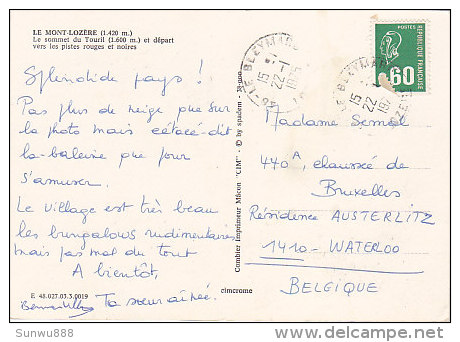 LE MONT-LOZÈRE (1.420 m.)
Le sommet du Touril (1.600 m.) et départ
vers les pistes rouges et noires
Splendide pays !
Pas plus de neige que sur
la photo mais cétacé-dit
la-baleine que pour
s'amuser.
Le village est très beau
les bungalows rudimentaires
mais pas mal du tout
A bientôt,
Ta sœur aînée.
E 48.027.03.3.0019
cimcrome
Combier Imprimeur Mâcon "CIM" - © by spadem
LE BLEYMARD
15
22-1
RÉPUBLIQUE FRANÇAISE
0,60
Madame Semal
440A, chaussée de
Bruxelles
Résidence AUSTERLITZ
1410-WATERLOO
BELGIQUE
Sunwu888
http://www.delcampe.net